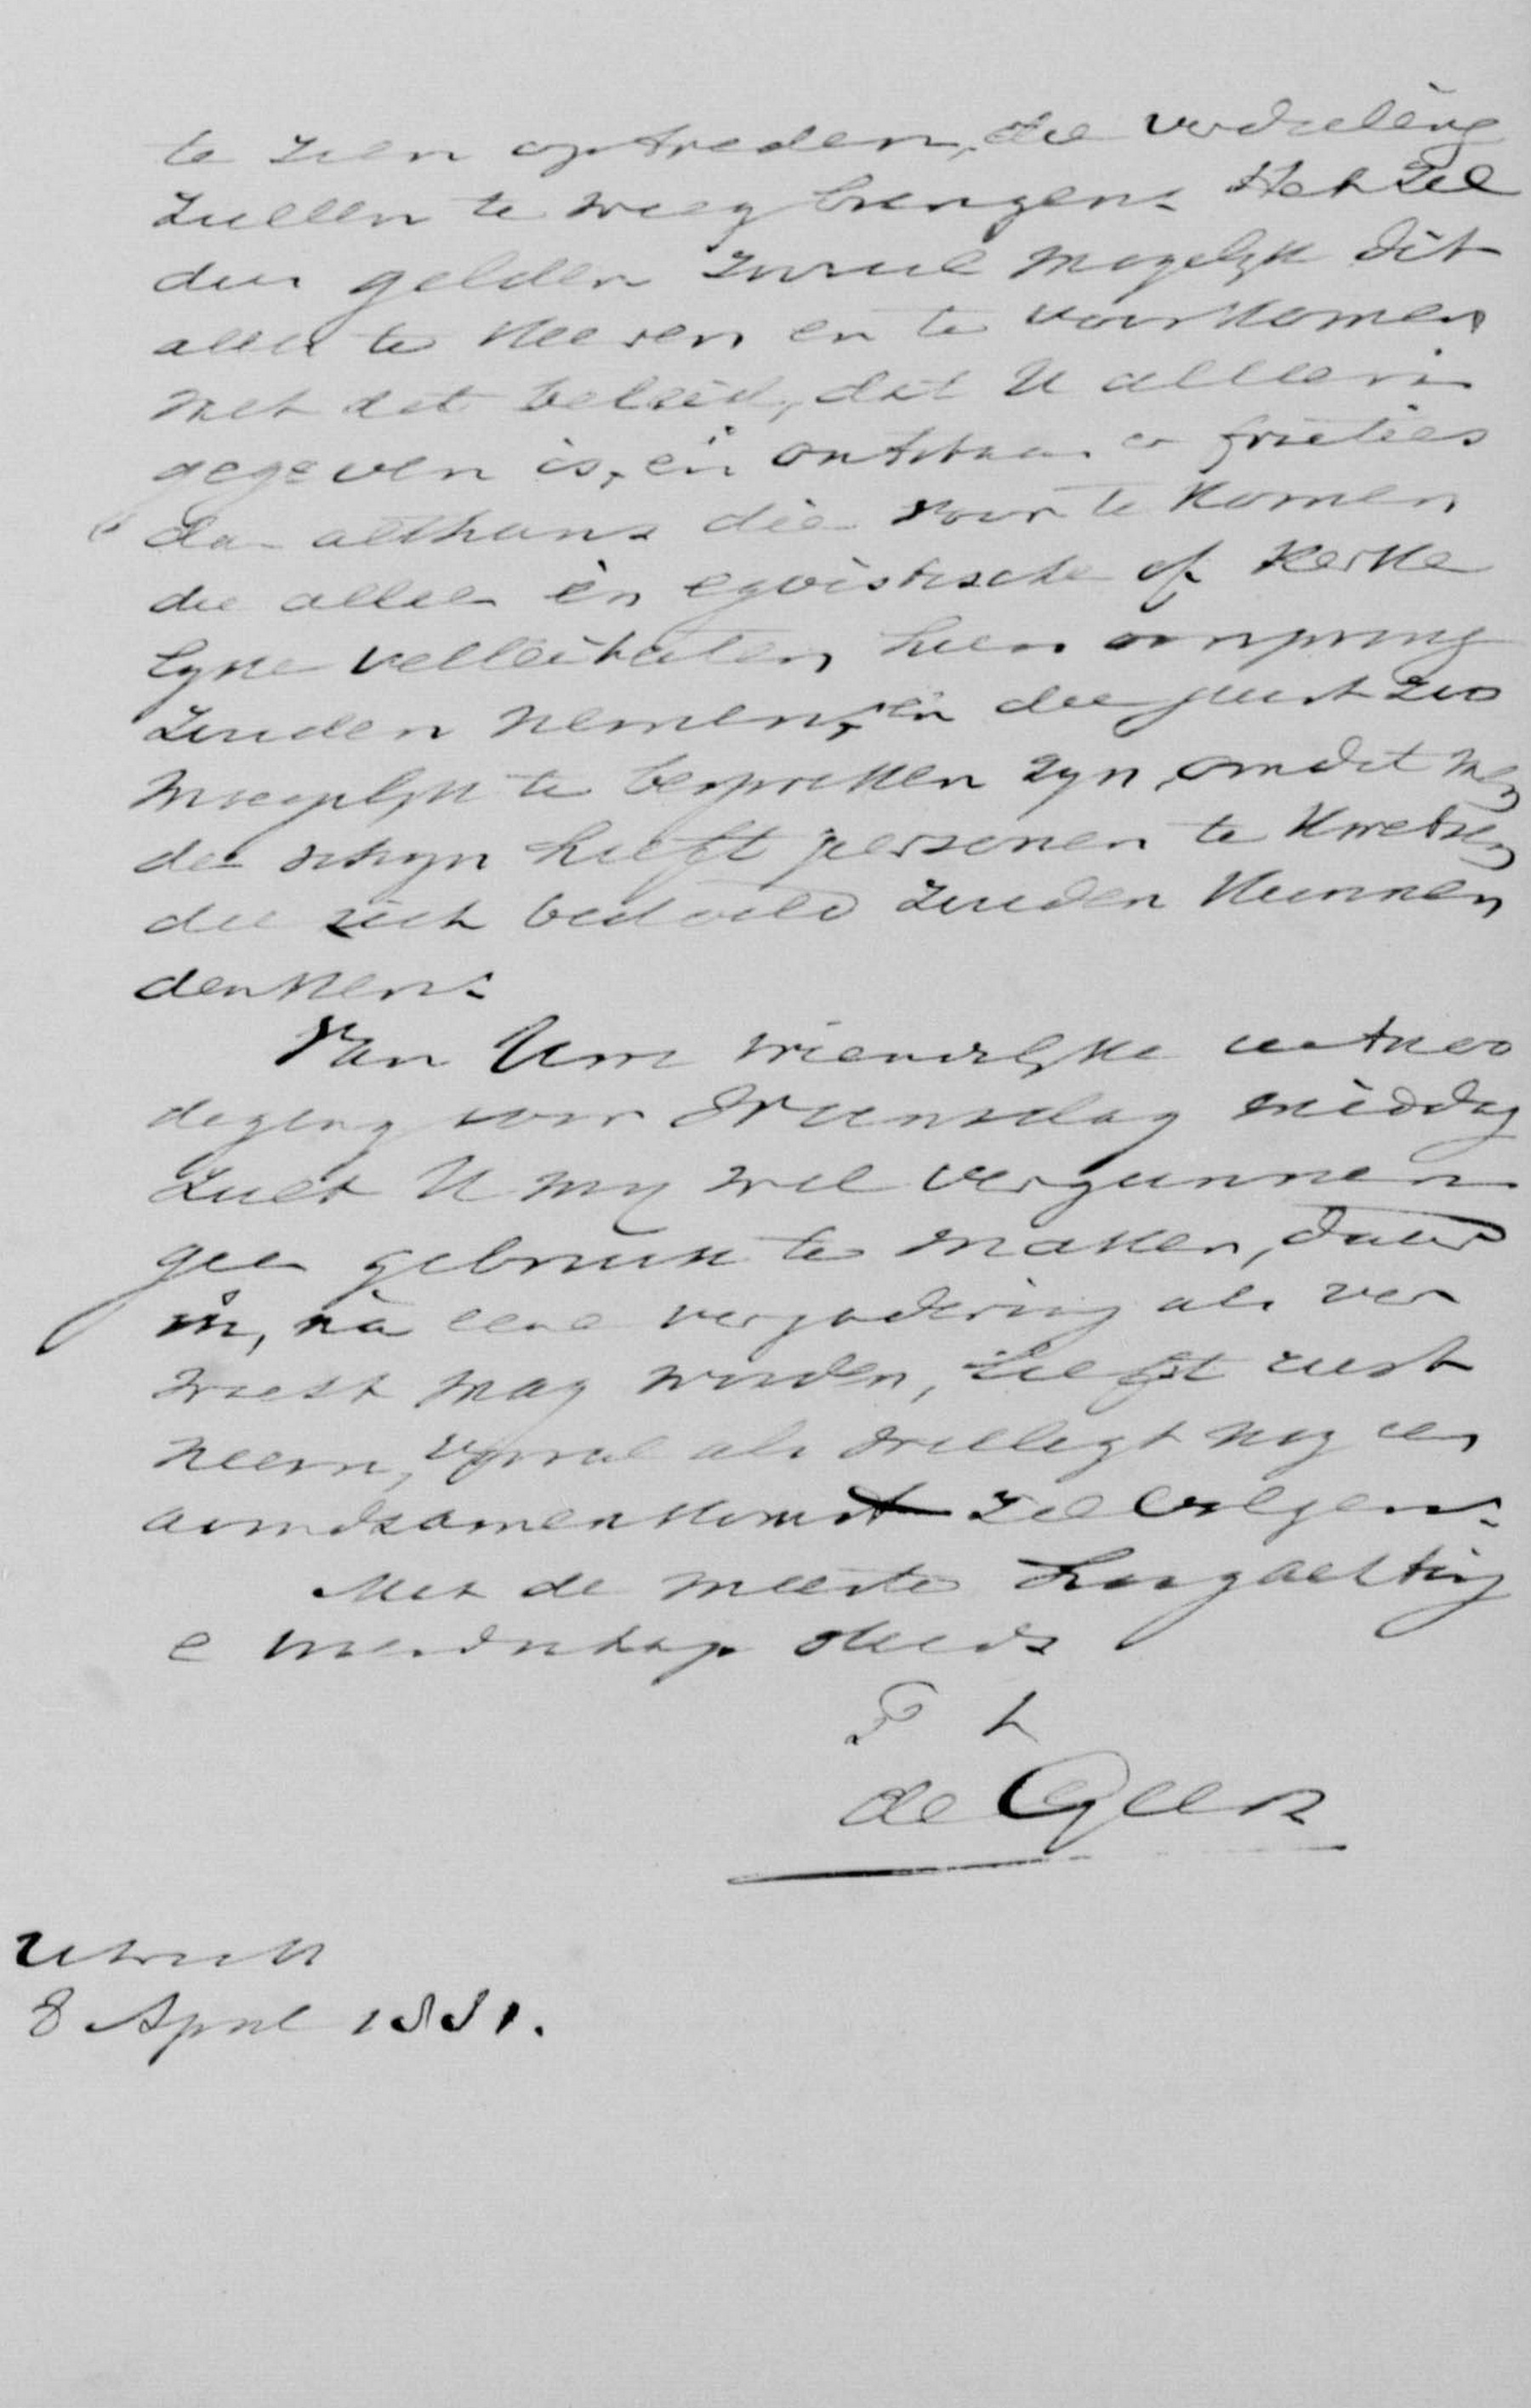 te zien optreden, die verdeeling
zullen te weeg brengen. Het zal
dus gelden zooveel mogelyk dit
alles te keeren en te voorkomen
met dat beleid, dat U alleen
gegeven is, en ontstaan er fricties
dan althans die voor te komen
die alleen in egoistische of kerke
lyke velleiteiten hun oorsprong
zouden nemen, en die juist zoo
moeyelyk te bespreken zyn, omdat men
den schyn heeft personen te kwetsen
die zich bedoeld zouden kunnen
denken.
Van Uwe vriendelyke uitnoo
diging voor Woensdag middag
zult U my wel vergunnen
geen gebruik te maken, daar
ik, na eene vergadering als ver
wacht mag worden, liefst rust
neem, vooral als welligt nog een
avondsamenkomst zal volgen.
Met de meeste hoogachting
e vriendschap steeds
T t
de Geer
Utrecht
8 April 1881.